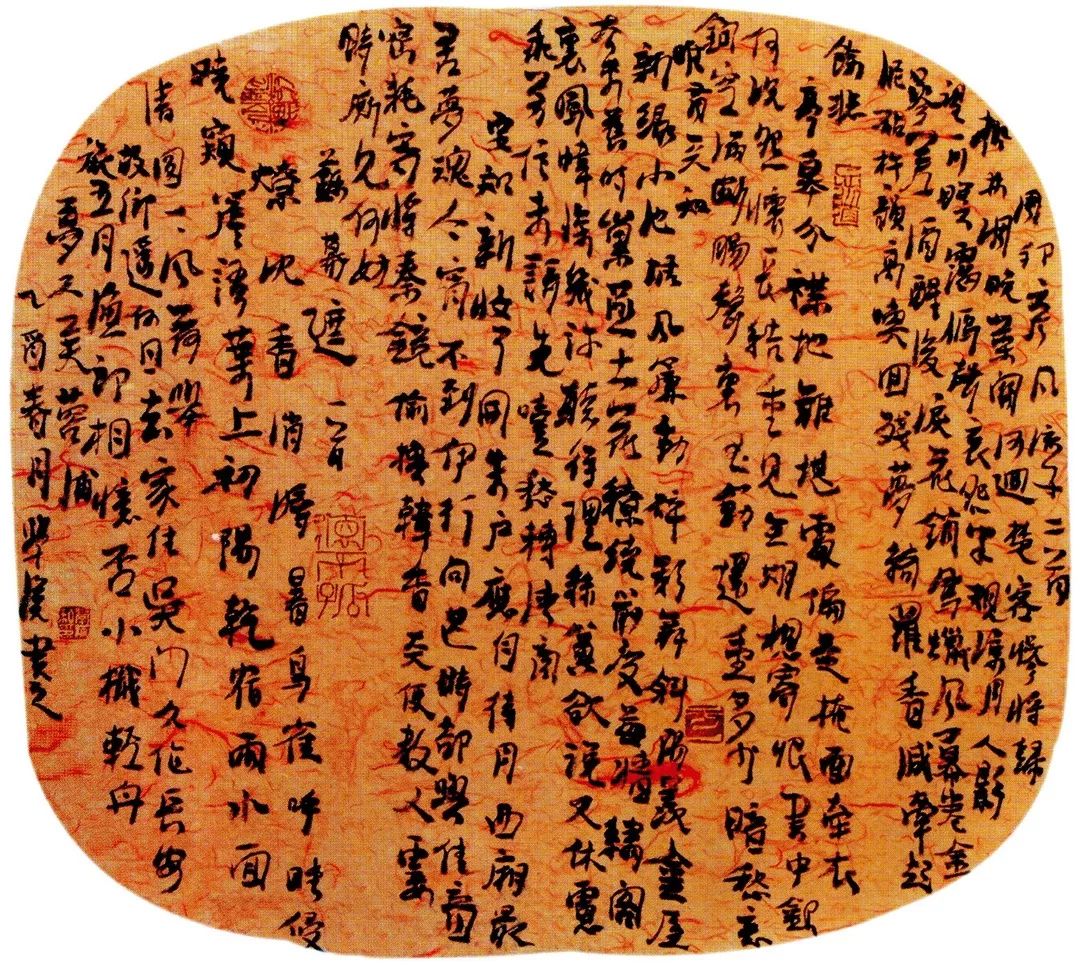 周邦彦風流子二首
楓林凋晚葉關河迥楚客慘將歸
望一川暝靄雁聲哀怨半規涼月人影
參差酒醒後淚花銷鳳蠟風幕卷金
泥砧杵韻高喚回殘夢綺羅香減牽起
餘悲
亭皋分襟地難堪處偏是掩面牽衣
何況怨懷長結重見無期想寄恨書中銀
鉤空滿斷腸聲裏玉筯還垂多少暗愁密意
唯有天知
新綠小池塘風簾動碎影舞斜陽羨金屋
去來舊時巢燕土花繚繞前度莓牆繡閣
裏鳳幃深幾許聽得理絲簧欲說又休慮
乖芳信未歌先噎愁轉清商
知新妝了開朱戶應自待月西廂最
苦夢魂今宵不到伊行問甚時却與佳音
密耗寄將秦鏡偷換韓香天便教人霎
時廝見何妨
蘇幕遮一首
燎沈香消溽暑鳥雀呼晴侵
曉窺簷語葉上初陽乾宿雨水面
清圓一一風荷舉
故鄉遙何日去家住吳門久作長安
旅五月漁郎相憶否小楫輕舟
夢入芙蓉浦
乙酉春月學俊書之